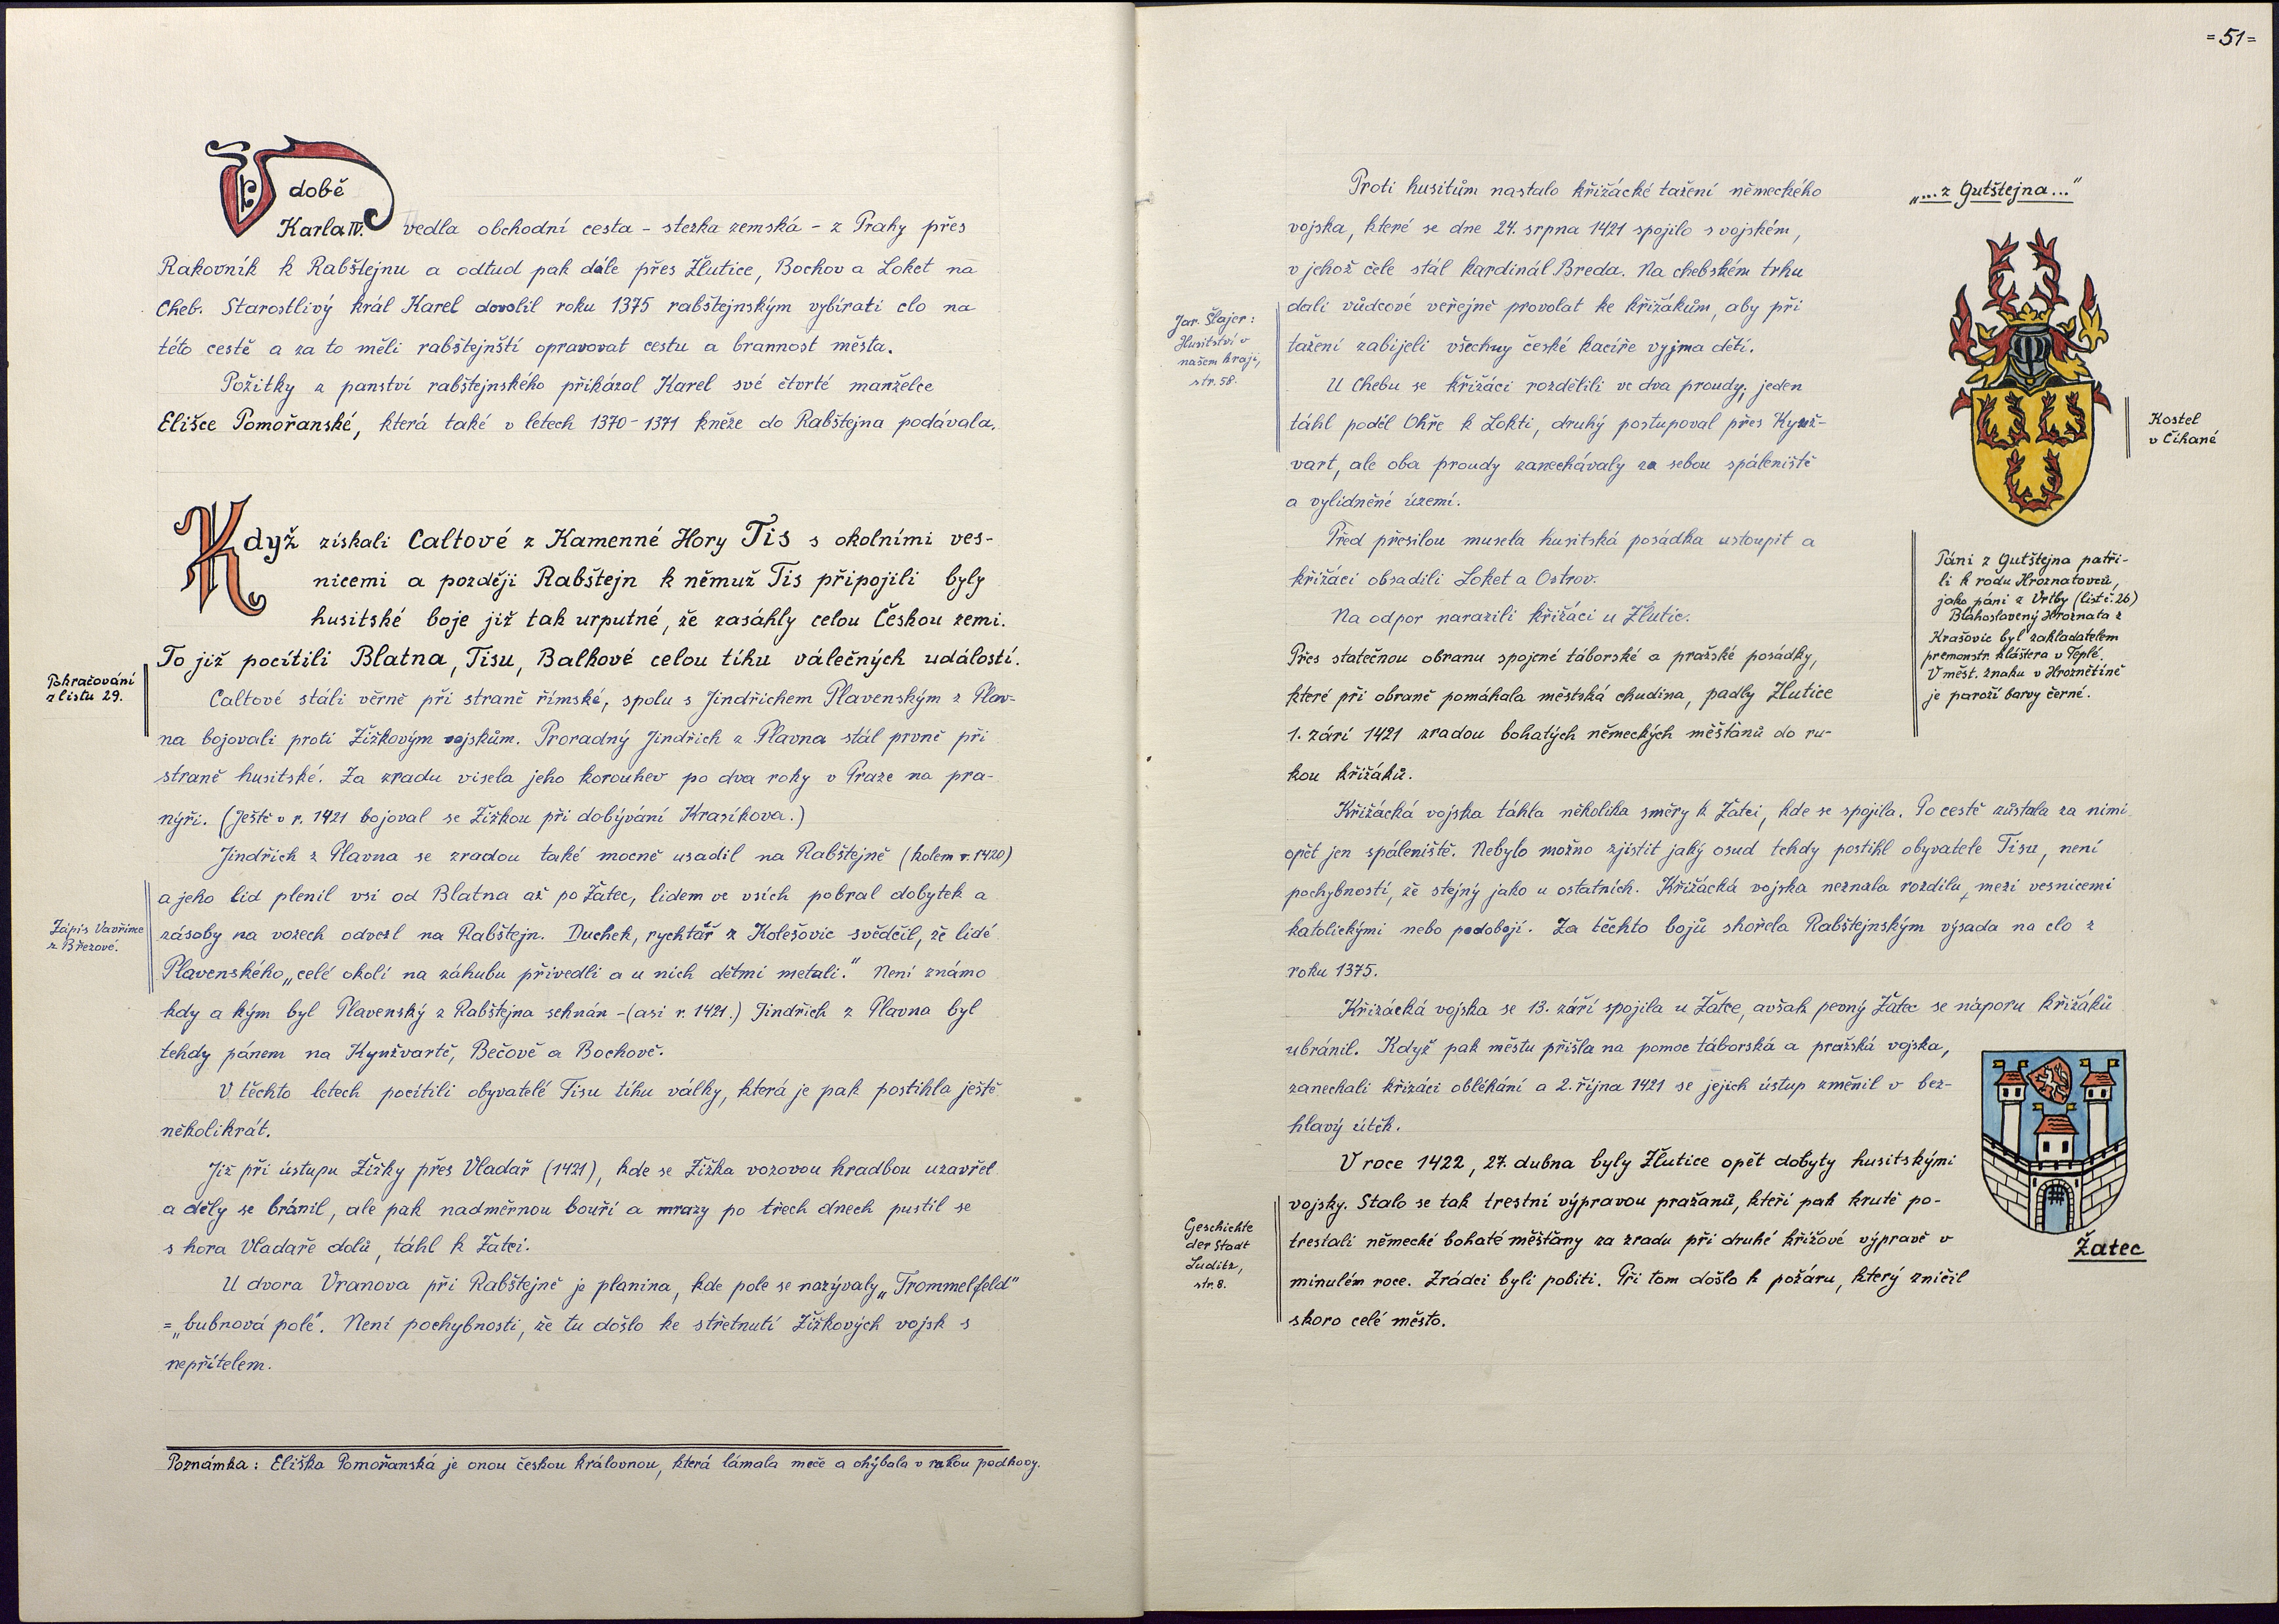 V době
Karla IV. vedla obchodní cesta - stezka zemská - z Prahy přes
Rakovník k Rabštejnu a odtud pak dále přes Žlutice, Bochov a Loket na
Cheb. Starostlivý král Karel dovolil roku 1375 rabštejnským vybírati clo na
této cestě a za to měli rabštejnští opravovat cestu a brannost města.
Požitky z panství rabštejnského přikázal Karel své čtvrté manželce
Elišce Pomořanské, která také v letech 1370-1371 kněze do Rabštejna podávala.
Když získali Caltové z Kamenné Hory Tis s okolními ves-
nicemi a později Rabštejn k němuž Tis připojili byly
husitské boje již tak urputné, že zasáhly celou Českou zemi.
To již pocítili Blatna, Tisu, Balkové celou tíhu válečných událostí.
Pokračování
z listu 29.
Caltové stáli věrně při straně římské, spolu s Jindřichem Plavenským z Plav-
na bojovali proti Žižkovým vojskům. Proradný Jindřich z Plavna stál prvně při
straně husitské. Za zradu visela jeho korouhev po dva roky v Praze na pra-
nýři. (Ještě v r. 1421 bojoval se Žižkou při dobývání Krasíkova.)
Jindřich z Plavna se zradou také mocně usadil na Rabštejně (kolem r. 1420)
a jeho lid plenil vsi od Blatna až po Žatec, lidem ve vsích pobral dobytek a
zásoby na vozech odvezl na Rabštejn. Duchek, rychtář z Kolešovic svědčil, že lidé
Plavenského „celé okolí na záhubu přivedli a u nich dětmi metali." Není známo
Zápis Vavřince
z Březové.
kdy a kým byl Plavenský z Rabštejna sehnán - (asi r. 1421.) Jindřich z Plavna byl
tehdy pánem na Kynžvartě, Bečově a Bochově.
V těchto letech pocítili obyvatelé Tisu tíhu války, která je pak postihla ještě
několikrát.
Již při ústupu Žižky přes Vladař (1421), kde se Žižka vozovou hradbou uzavřel
a děly se bránil, ale pak nadměrnou bouří a mrazy po třech dnech pustil se
s hora Vladaře dolů, táhl k Žatci.
U dvora Vranova při Rabštejně je planina, kde pole se nazývaly „Trommelfeld"
= „bubnová pole". Není pochybnosti, že tu došlo ke střetnutí Žižkových vojsk s
nepřítelem.
Poznámka: Eliška Pomořanská je onou českou královnou, která lámala meče a ohýbala v rukou podkovy.
=51=
Proti husitům nastalo křižácké tažení německého
vojska, které se dne 24. srpna 1421 spojilo s vojském,
v jehož čele stál kardinál Breda. Na chebském trhu
dali vůdcové veřejně provolat ke křižákům, aby při
tažení zabijeli všechny české kacíře vyjma dětí.
U Chebu se křižáci rozdělili ve dva proudy; jeden
táhl podél Ohře k Lokti, druhý postupoval přes Kynž-
Jar. Šlajer:
Husitství v
našem kraji,
str. 58.
vart, ale oba proudy zanechávaly za sebou spáleniště
a vylidněné území.
Před přesilou musela husitská posádka ustoupit a
křižáci obsadili Loket a Ostrov.
Na odpor narazili křižáci u Žlutic.
Přes statečnou obranu spojené táborské a pražské posádky,
které při obraně pomáhala městská chudina, padly Žlutice
1. září 1421 zradou bohatých německých měšťanů do ru-
kou křižáků.
„...z Gutštejna..."
Kostel
v Číhané
Páni z Gutštejna patři-
li k rodu Hroznatovců,
jako páni z Vrtby (list č. 26)
Blahoslavený Hroznata z
Krašovic byl zakladatelem
premonstr. kláštera v Teplé.
V měst. znaku v Hroznětíně
je paroží barvy černé.
Křižácká vojska táhla několika směry k Žatci, kde se spojila. Po cestě zůstala za nimi
opět jen spáleniště. Nebylo možno zjistit jaký osud tehdy postihl obyvatele Tisu, není
pochybností, že stejný jako u ostatních. Křižácká vojska neznala rozdílu, mezi vesnicemi
katolickými nebo podobojí. Za těchto bojů shořela Rabštejnským výsada na clo z
roku 1375.
Křižácká vojska se 13. září spojila u Žatce, avšak pevný Žatec se náporu křižáků
ubránil. Když pak městu přišla na pomoc táborská a pražská vojska,
zanechali křižáci obléhání a 2. října 1421 se jejich ústup změnil v bez-
hlavý útěk.
V roce 1422, 27. dubna byly Žlutice opět dobyty husitskými
vojsky. Stalo se tak trestní výpravou pražanů, kteří pak krutě po-
trestali německé bohaté měšťany za zradu při druhé křížové výpravě v
minulém roce. Zrádci byli pobiti. Při tom došlo k požáru, který zničil
skoro celé město.
Geschichte
der Stadt
Luditz,
str. 8.
Žatec